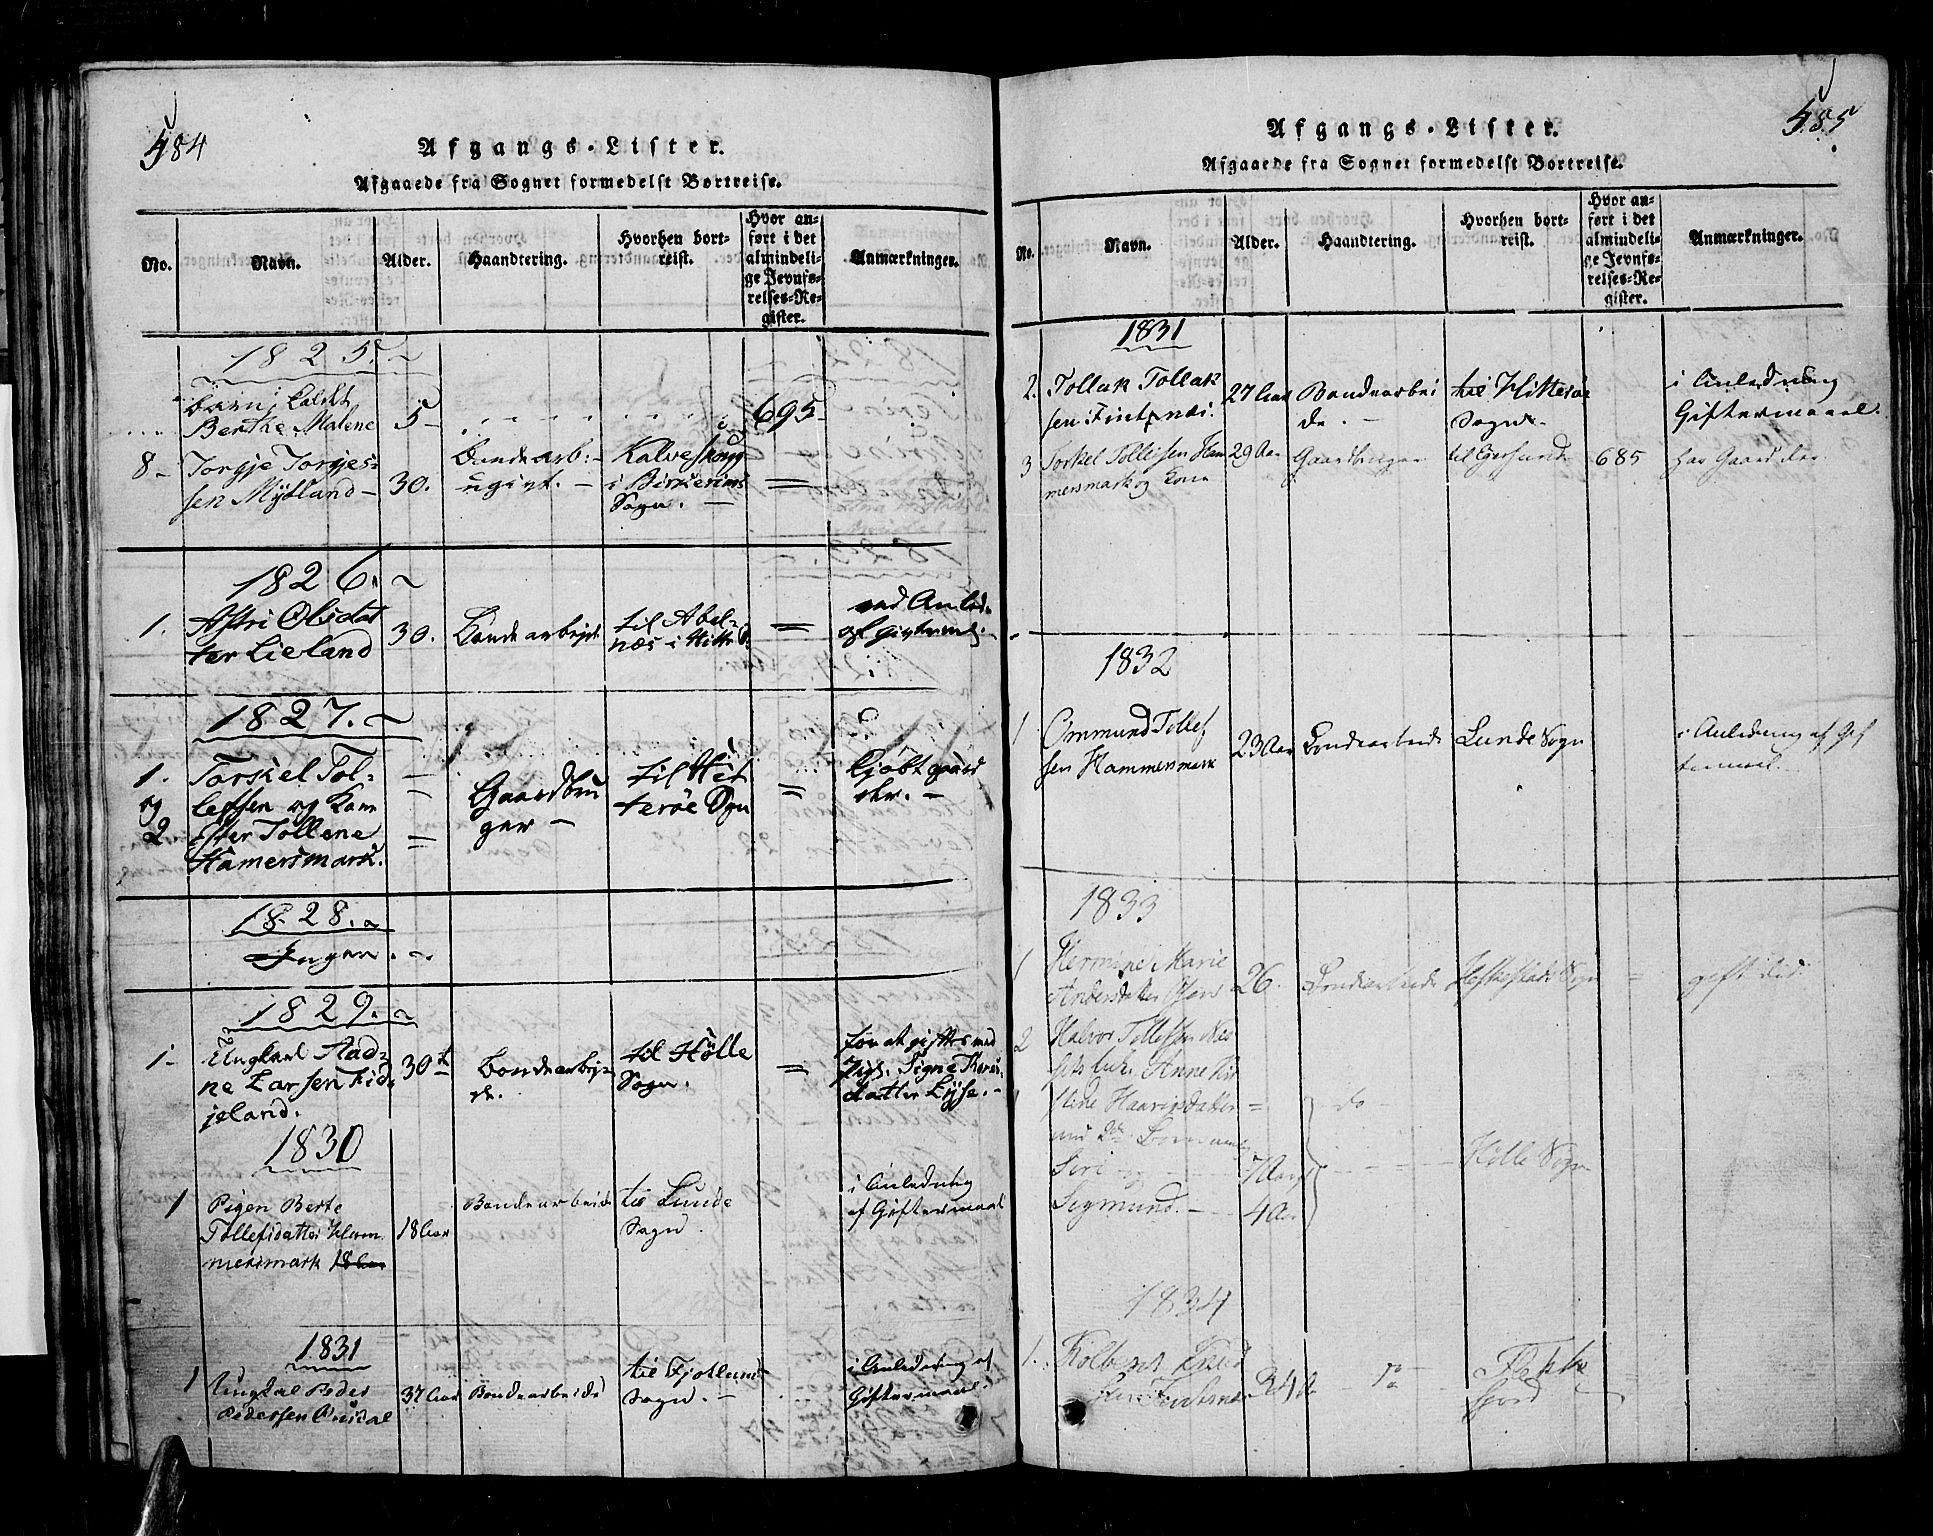 584
Afgangs-Lister.
Afgaaede fra Sognet formedelst Bortreise.
No.
Navn.
Alder.
Haandtering.
Hvorhen bort-
reist.
Hvor an-
ført i det
almindeli-
ge Jevnfø-
relses-Re-
gister.
Anmærkninger.
1825.
barn, kaldet
Berthe Malene
5
695
8
Torgje Torgjes-
sen Mydland
30.
Bondearb:
i Birkerims
Sogn.
1826.
1.
Astri Olsdat
ter Lieland
30.
Bondearbejde
til Abel-
næs i Hitterø
ved Anled.
af Givterml.
1827.
1.
og
2
Torskel Tol-
lefsen og Kone
Ester Tollene
Hamersmark.
Gaardbru
ger
til Hit
terøe Sogn
kjøbt gaard
der.
1828.
Ingen.
1829.
1
Ungkarl Aad-
ne Larsen Eid-
jeland.
30
Bondearbej-
de.
til Hölle
Sogn.
for at giftes med
Pige. Signe
datter Lyse.
1830
1
Pigen Berte
Tollefsdatter Ham
mersmark 18 Aar
18 Aar
Bondearbeide
til Lunde
Sogn.
i Anledning
af Giftermaal
1831
1
Ungkal Peder
Pedersen
37 Aar
Bondearbeide
til Fjotland
Sogn.
i Anledning af
Giftermaal.
585
Afgangs-Lister.
Afgaaede fra Sognet formedelst Bortreise.
No.
Navn.
Alder.
Haandtering.
Hvorhen bort-
reist.
Hvor an-
ført i det
almindeli-
ge Jevnfø-
relses-Re-
gister.
Anmærkninger.
1831
2.
Tollak Tollak
sen Fintsnæs.
27 Aar
Bondearbei
de.
til Hitterøe
Sogn.
i Anledning
Giftermaal.
3
Torkel Tollefsen Ham
mersmark og Kone
29 Aar
Gaardbruger
til Egersund
685
har Gaard der
1832
1
Ommund Tollef
sen Hammersmark
23 Aar
Bondearbeide
Lunde Sogn
i Anledning af Gif
termaal.
1833
1
Hermine Marie
Andersdatter
26.
Bondearbeide
Heskestads Sogn
gift der
2
Halvor Tollefsen
Anne Kir
stine Haavigsdatter
med 2de Børn
Siri og
7 Aar
Sigmund.
4 Aar
do
Hölle Sogn
1834
1.
Kolbent
sen Fintsnæs
34 A
do
Flekke
fjord